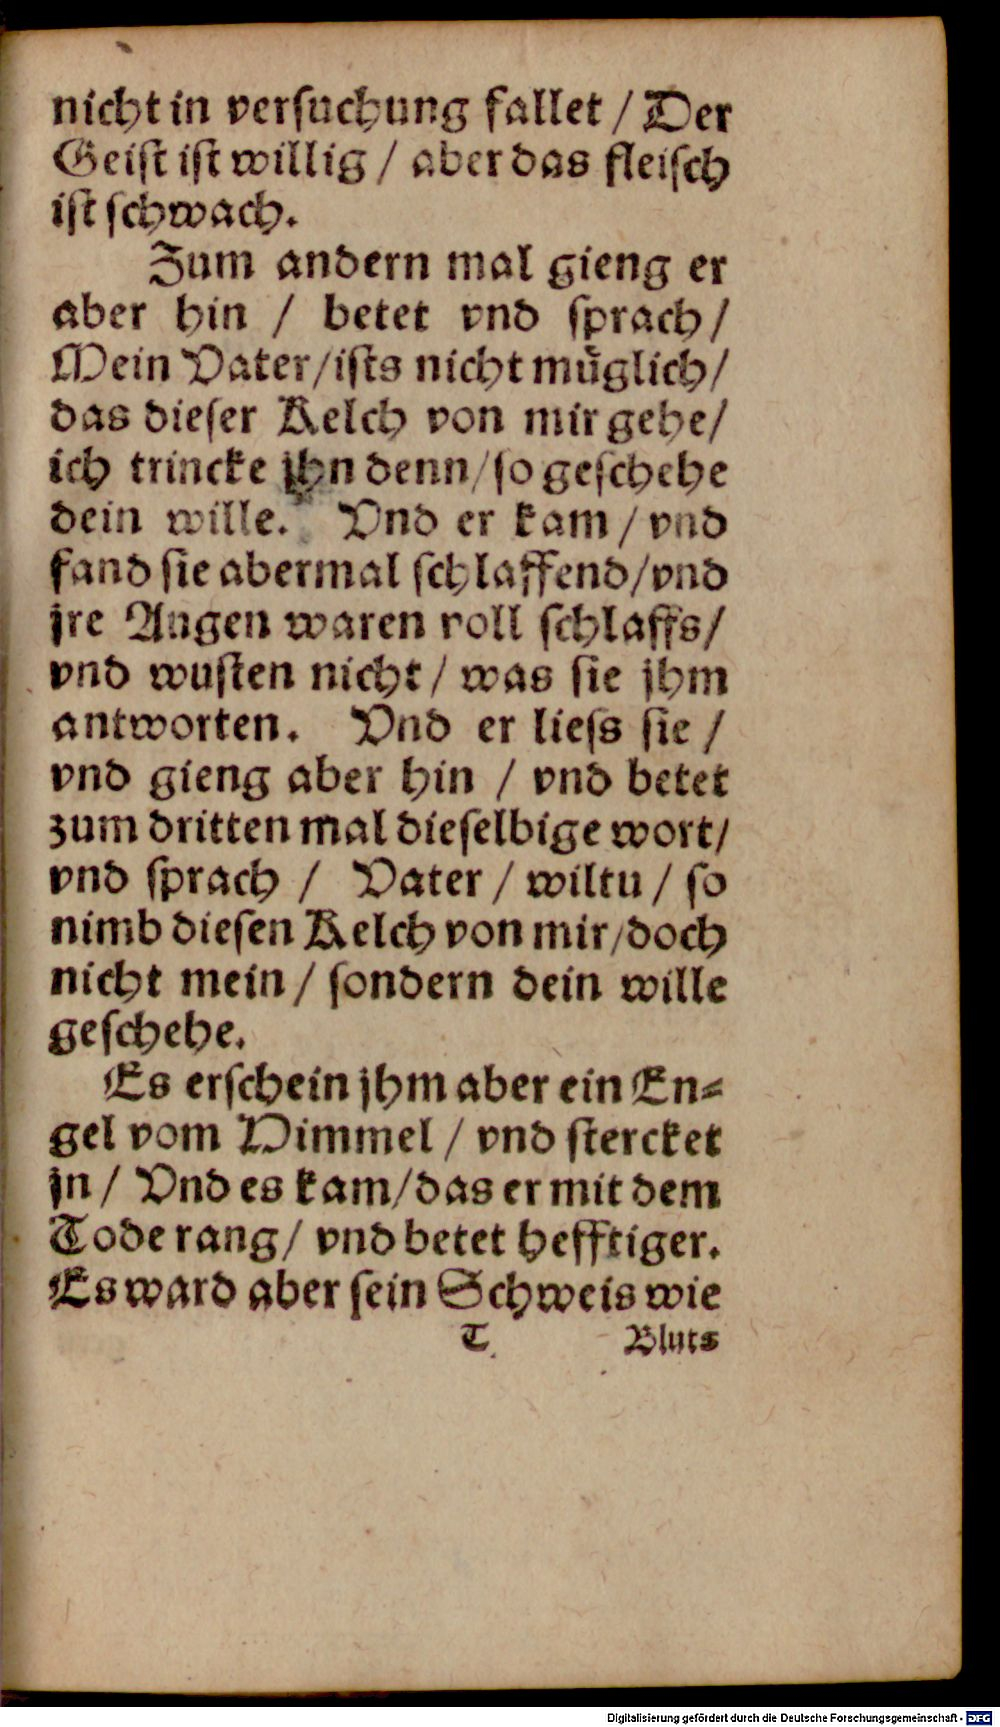 nicht in verſuchung fallet / Der
Geiſt iſt willig / aber das fleiſch
iſt ſchwach.
Zum andern mal gieng er
aber hin / betet vnd ſprach /
Mein Vater / iſts nicht muͤglich /
das dieſer Kelch von mir gehe /
ich trincke jhn denn / ſo geſchehe
dein wille. Vnd er kam / vnd
fand ſie abermal ſchlaffend / vnd
jre Augen waren voll ſchlaffs /
vnd wuſten nicht / was ſie jhm
antworten. Vnd er lieſs ſie /
vnd gieng aber hin / vnd betet
zum dritten mal dieſelbige wort /
vnd ſprach / Vater / wiltu / ſo
nimb dieſen Kelch von mir / doch
nicht mein / ſondern dein wille
geſchehe.
Es erſchein jhm aber ein En⸗
gel vom Himmel / vnd ſtercket
jn / Vnd es kam / das er mit dem
Tode rang / vnd betet hefftiger.
Es ward aber ſein Schweis wie
T Bluts
Digitalisierung gefördert durch die Deutsche Forschungsgemeinschaft - DFG